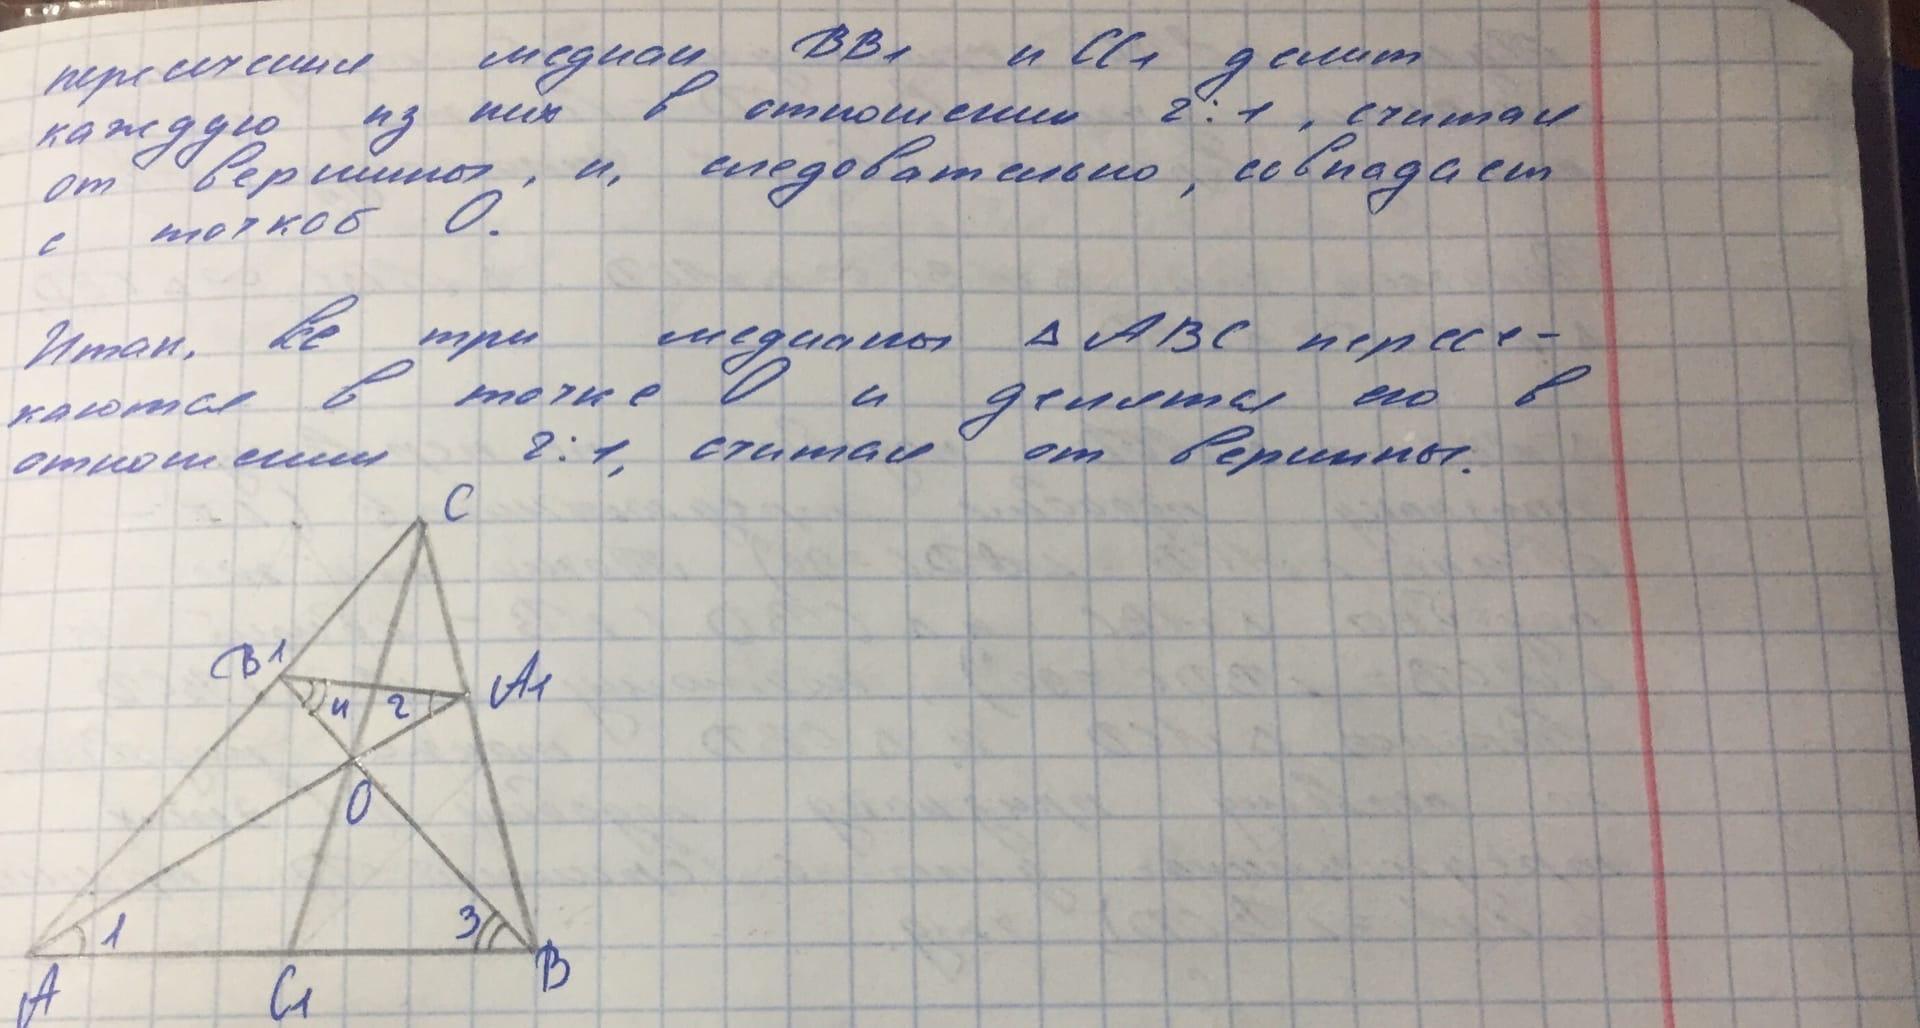 пересечения медиан BB1 и CC1 делит
каждую из них в отношении 2:1, считая
от вершины, и, следовательно, совпадает
с точкой O.
Итак, все три медианы △ ABC пересе-
каются в точке O и делятся ею в
отношении 2:1, считая от вершины.
C
B1
A1
4 2
O
1
3
A
C1
B